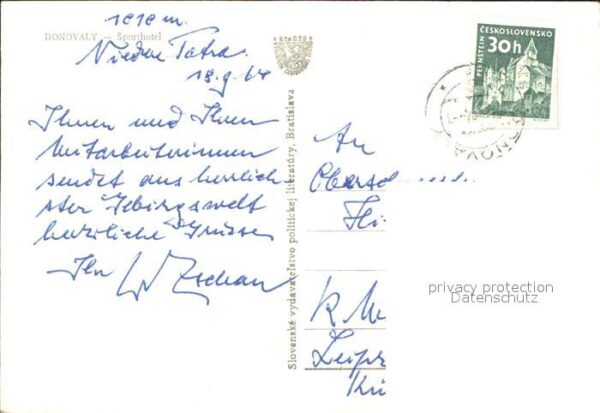 1010 m
DONOVALY – Športhotel
Niedere Tatra
18.9.64
Ihnen und Ihren
Mitarbeiterinnen
sendet aus herrlich
ster Gebirgswelt
herzliche Grüsse
Ihr
Slovenské vydavateľstvo politickej literatúry, Bratislava
PERNŠTEJN ČESKOSLOVENSKO
30h
An
Obersch
Leipz
privacy protection
Datenschutz